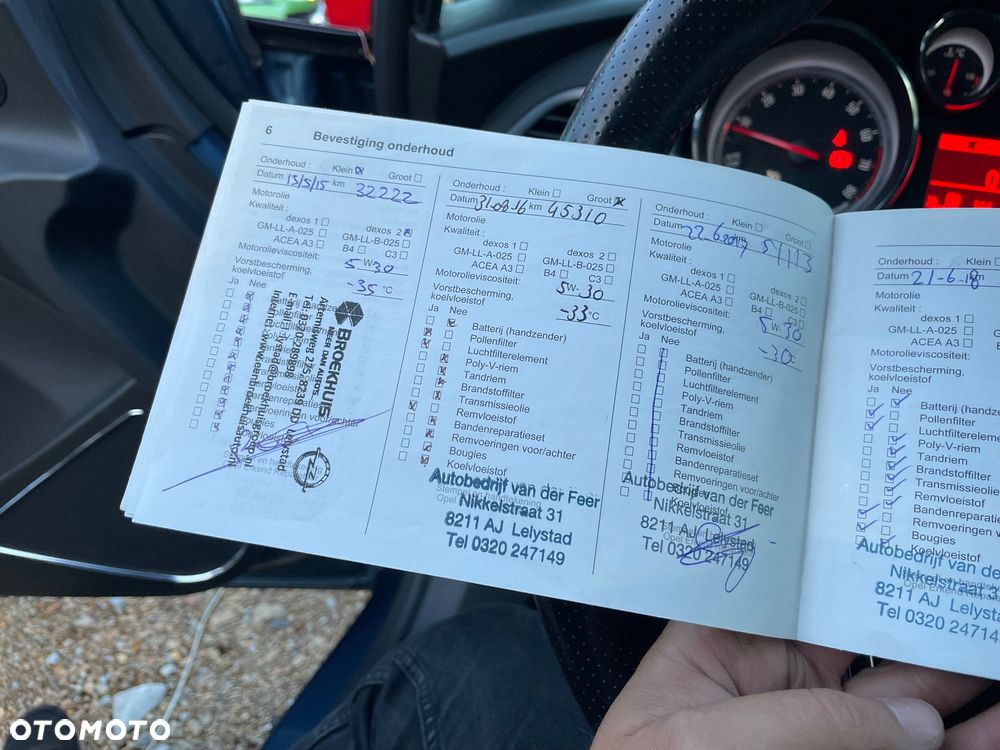 6 Bevestiging onderhoud
Onderhoud : Klein Groot
Datum 13/5/15 km 32222
Motorolie
Kwaliteit :
dexos 1 dexos 2
GM-LL-A-025 GM-LL-B-025
ACEA A3 B4 C3
Motorolieviscositeit: 5W-30
Vorstbescherming,
koelvloeistof -35 °C
Ja Nee
BROEKHUIS
MEER DAN AUTO'S
Lelystad
Onderhoud : Klein Groot
Datum 31-08-16 km 45310
Motorolie
Kwaliteit :
dexos 1 dexos 2
GM-LL-A-025 GM-LL-B-025
ACEA A3 B4 C3
Motorolieviscositeit: 5W-30
Vorstbescherming,
koelvloeistof -33 °C
Ja Nee
Batterij (handzender)
Pollenfilter
Luchtfilterelement
Poly-V-riem
Tandriem
Brandstoffilter
Transmissieolie
Remvloeistof
Bandenreparatieset
Remvoeringen voor/achter
Bougies
Koelvloeistof
Autobedrijf van der Feer
Nikkelstraat 31
8211 AJ Lelystad
Tel 0320 247149
Onderhoud : Klein Groot
Datum 22-6-2017 km 51113
Motorolie
Kwaliteit :
dexos 1 dexos 2
GM-LL-A-025 GM-LL-B-025
ACEA A3 B4 C3
Motorolieviscositeit: 5W-30
Vorstbescherming,
koelvloeistof -30 °C
Ja Nee
Batterij (handzender)
Pollenfilter
Luchtfilterelement
Poly-V-riem
Tandriem
Brandstoffilter
Transmissieolie
Remvloeistof
Bandenreparatieset
Remvoeringen voor/achter
Bougies
Koelvloeistof
Autobedrijf van der Feer
Nikkelstraat 31
8211 AJ Lelystad
Tel 0320 247149
Onderhoud :
Datum 21-6-18 km
Motorolie
Kwaliteit :
dexos 1
GM-LL-A-025
ACEA A3
Motorolieviscositeit:
Vorstbescherming,
koelvloeistof
Ja Nee
Batterij (handze
Pollenfilter
Luchtfilterelemen
Poly-V-riem
Tandriem
Brandstoffilter
Transmissieolie
Remvloeistof
Bandenreparatie
Remvoeringen vo
Bougies
Koelvloeistof
Autobedrijf van de
Nikkelstraat 3
8211 AJ Lelysta
Tel 0320 24714
OTOMOTO